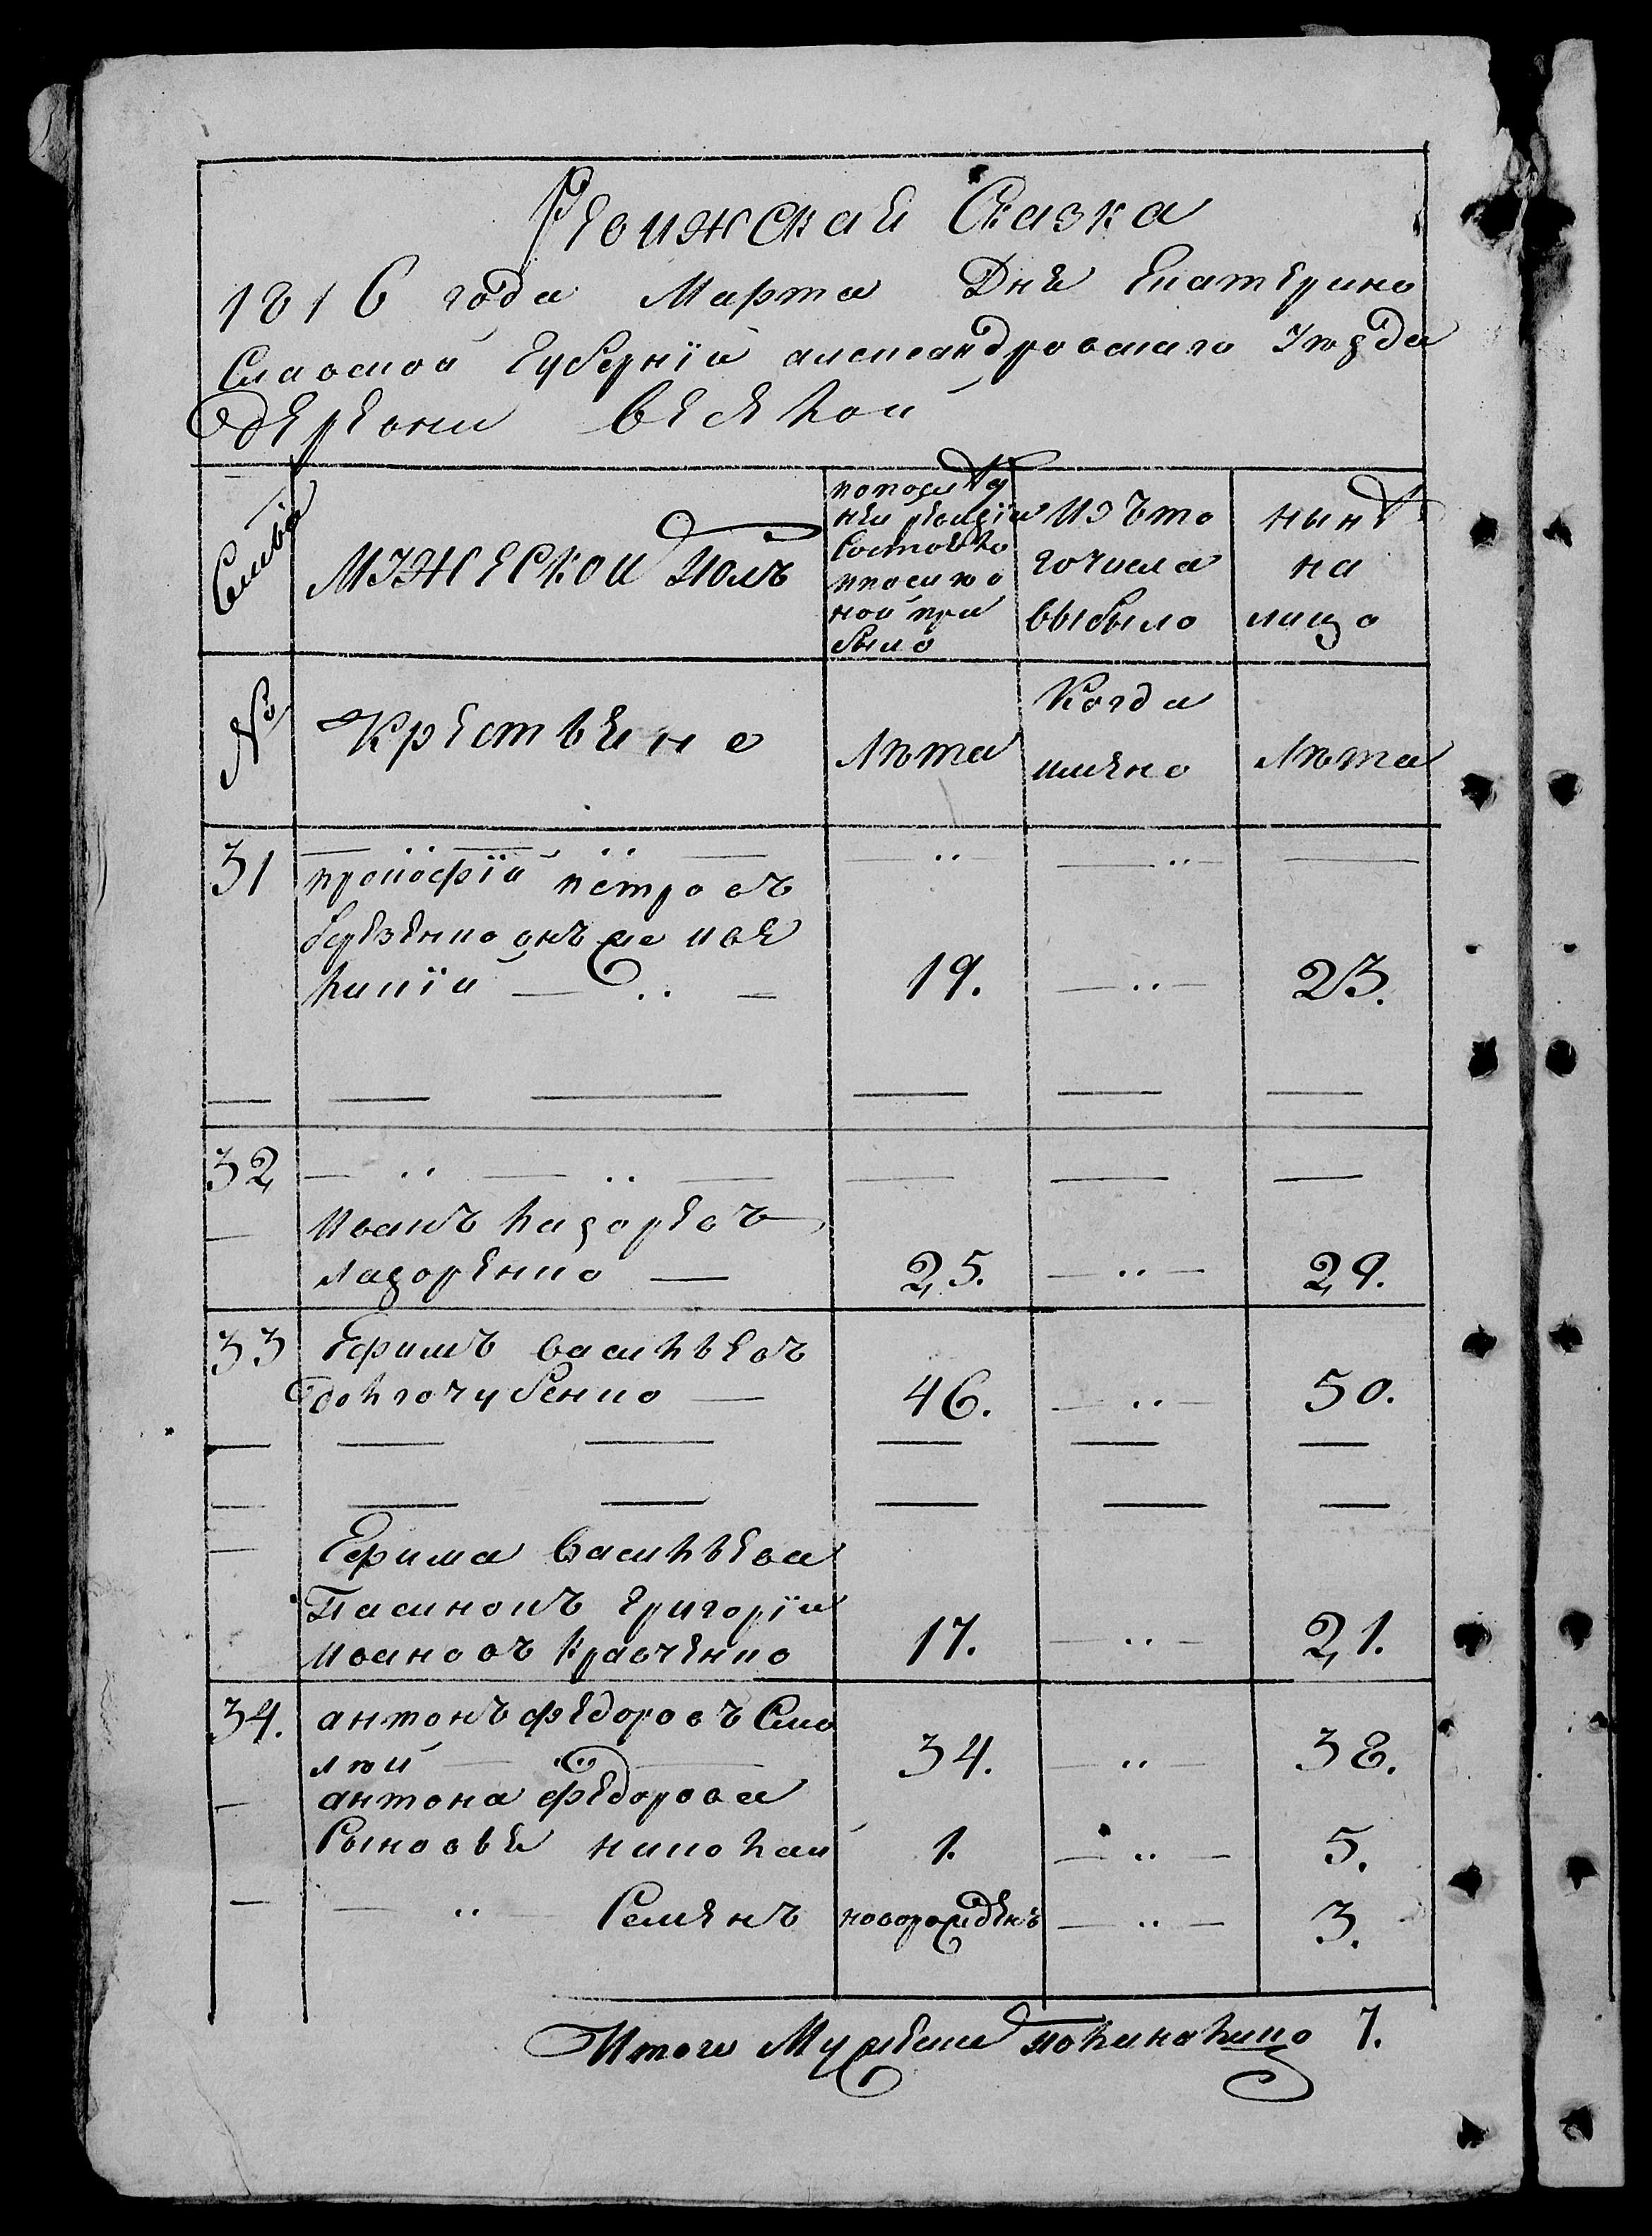 Ревижская Сказка
1816 года Марта Дня Екатерино
Славской Губернїи александровскаго Уезда
деревни веселой
Семьи
МУЖЕСКОИ Полъ
попослѣд
ней ревизїи
Состояло
ипосле то
ной при
было
Изъ то
гочисла
выбыло
нынѣ
на
лицо
№
Крестьяне
Лѣта
Когда
имяно
Лѣта
31 прокофїй петровъ
березенко онъ же
19. 23.
32
Иванъ лазоревъ
лазоренко — 25. 29.
33 Ефимъ васильевъ
долгочубенко — 46. 50.
Ефима Васильева
Пасинокъ григорїи
Ивановъ Кравченко 17. 21.
34. антонъ федоровъ Смо
лий 34. 38.
антона федорова
Сыновья николаи 1. 5.
Семенъ новорожденъ 3.
Итого Мужеска пола налицо 7.